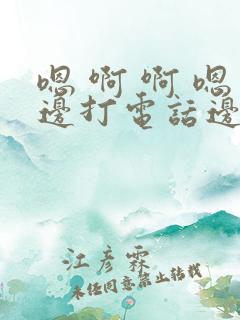 嗯 啊 啊 嗯
邊打電話邊
江彦霖
未经同意禁止转载